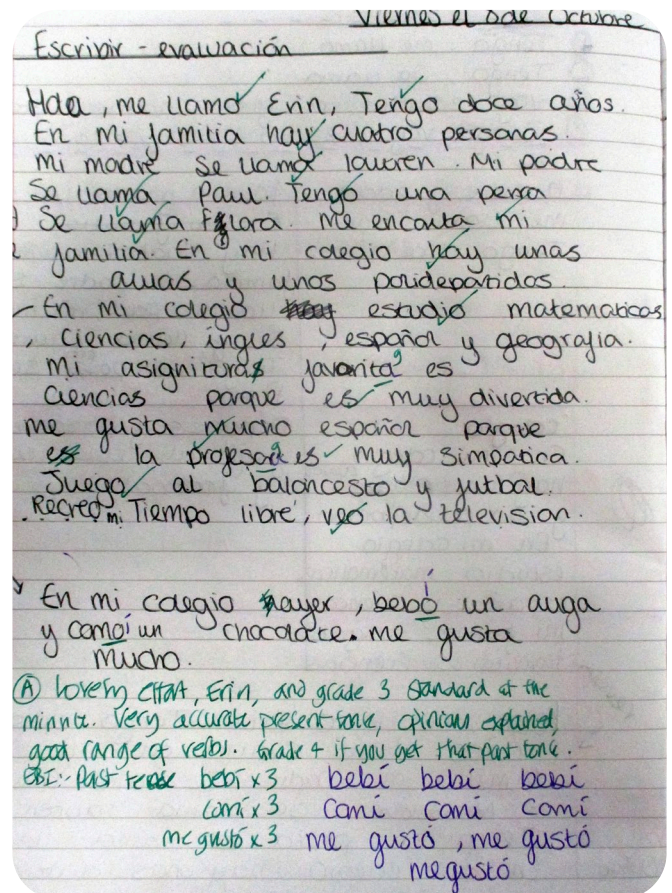 Viernes el 8 de Octubre
Escribir - evaluación
Hola, me llamo Erin, Tengo doce años.
En mi familia hay cuatro personas.
mi madre Se llama lauren. Mi padre
Se llama Paul. Tengo una perra
Se llama Flora. me encanta mi
familia. En mi colegio hay unas
aulas y unos polidepartidos.
En mi colegio estudio matematicas
, ciencias, ingles, español y geografia.
mi asignitura favorita es
ciencias parque es muy divertida.
me gusta mucho español parque
la profesora es muy simpatica.
Juego al baloncesto y futbal.
Recreo mi Tiempo libre, veo la television.
En mi colegio ayer, bebí un auga
y comí un chocolate. me gusta
mucho.
Ⓐ Lovely effort, Erin, and grade 3 standard at the
minute. Very accurate present tense, opinions explained,
good range of verbs. Grade 4 if you get that past tense.
EBI:- Past tense bebí x3 bebí bebí bebí
comí x3 comí comí comí
me gustó x3 me gustó, me gustó
me gustó